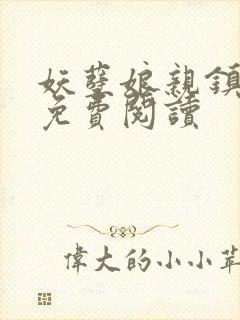 妖孽娘親鎮
免費閱讀
偉大的小小苹